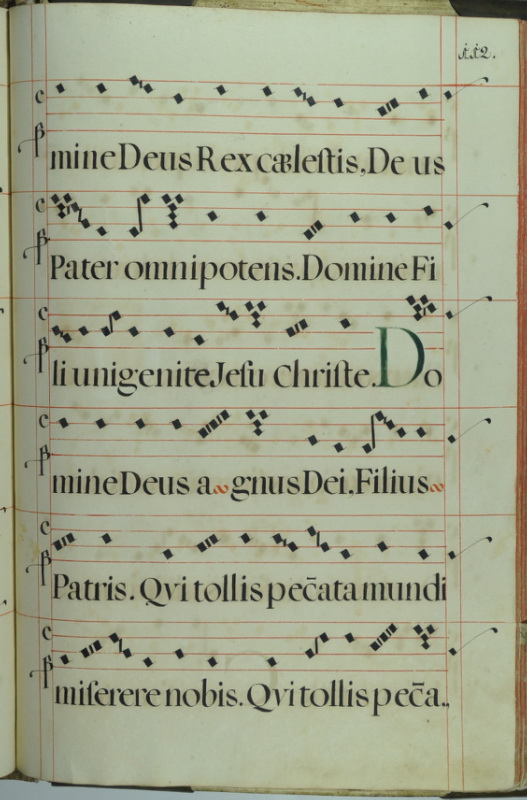 112.
mine Deus Rex cælestis, De us
Pater omnipotens. Domine Fi
li unigenite Jesu Christe. Do
mine Deus a gnus Dei, Filius
Patris. Qvi tollis pec̄ata mundi
miserere nobis. Qvi tollis pec̄a.,